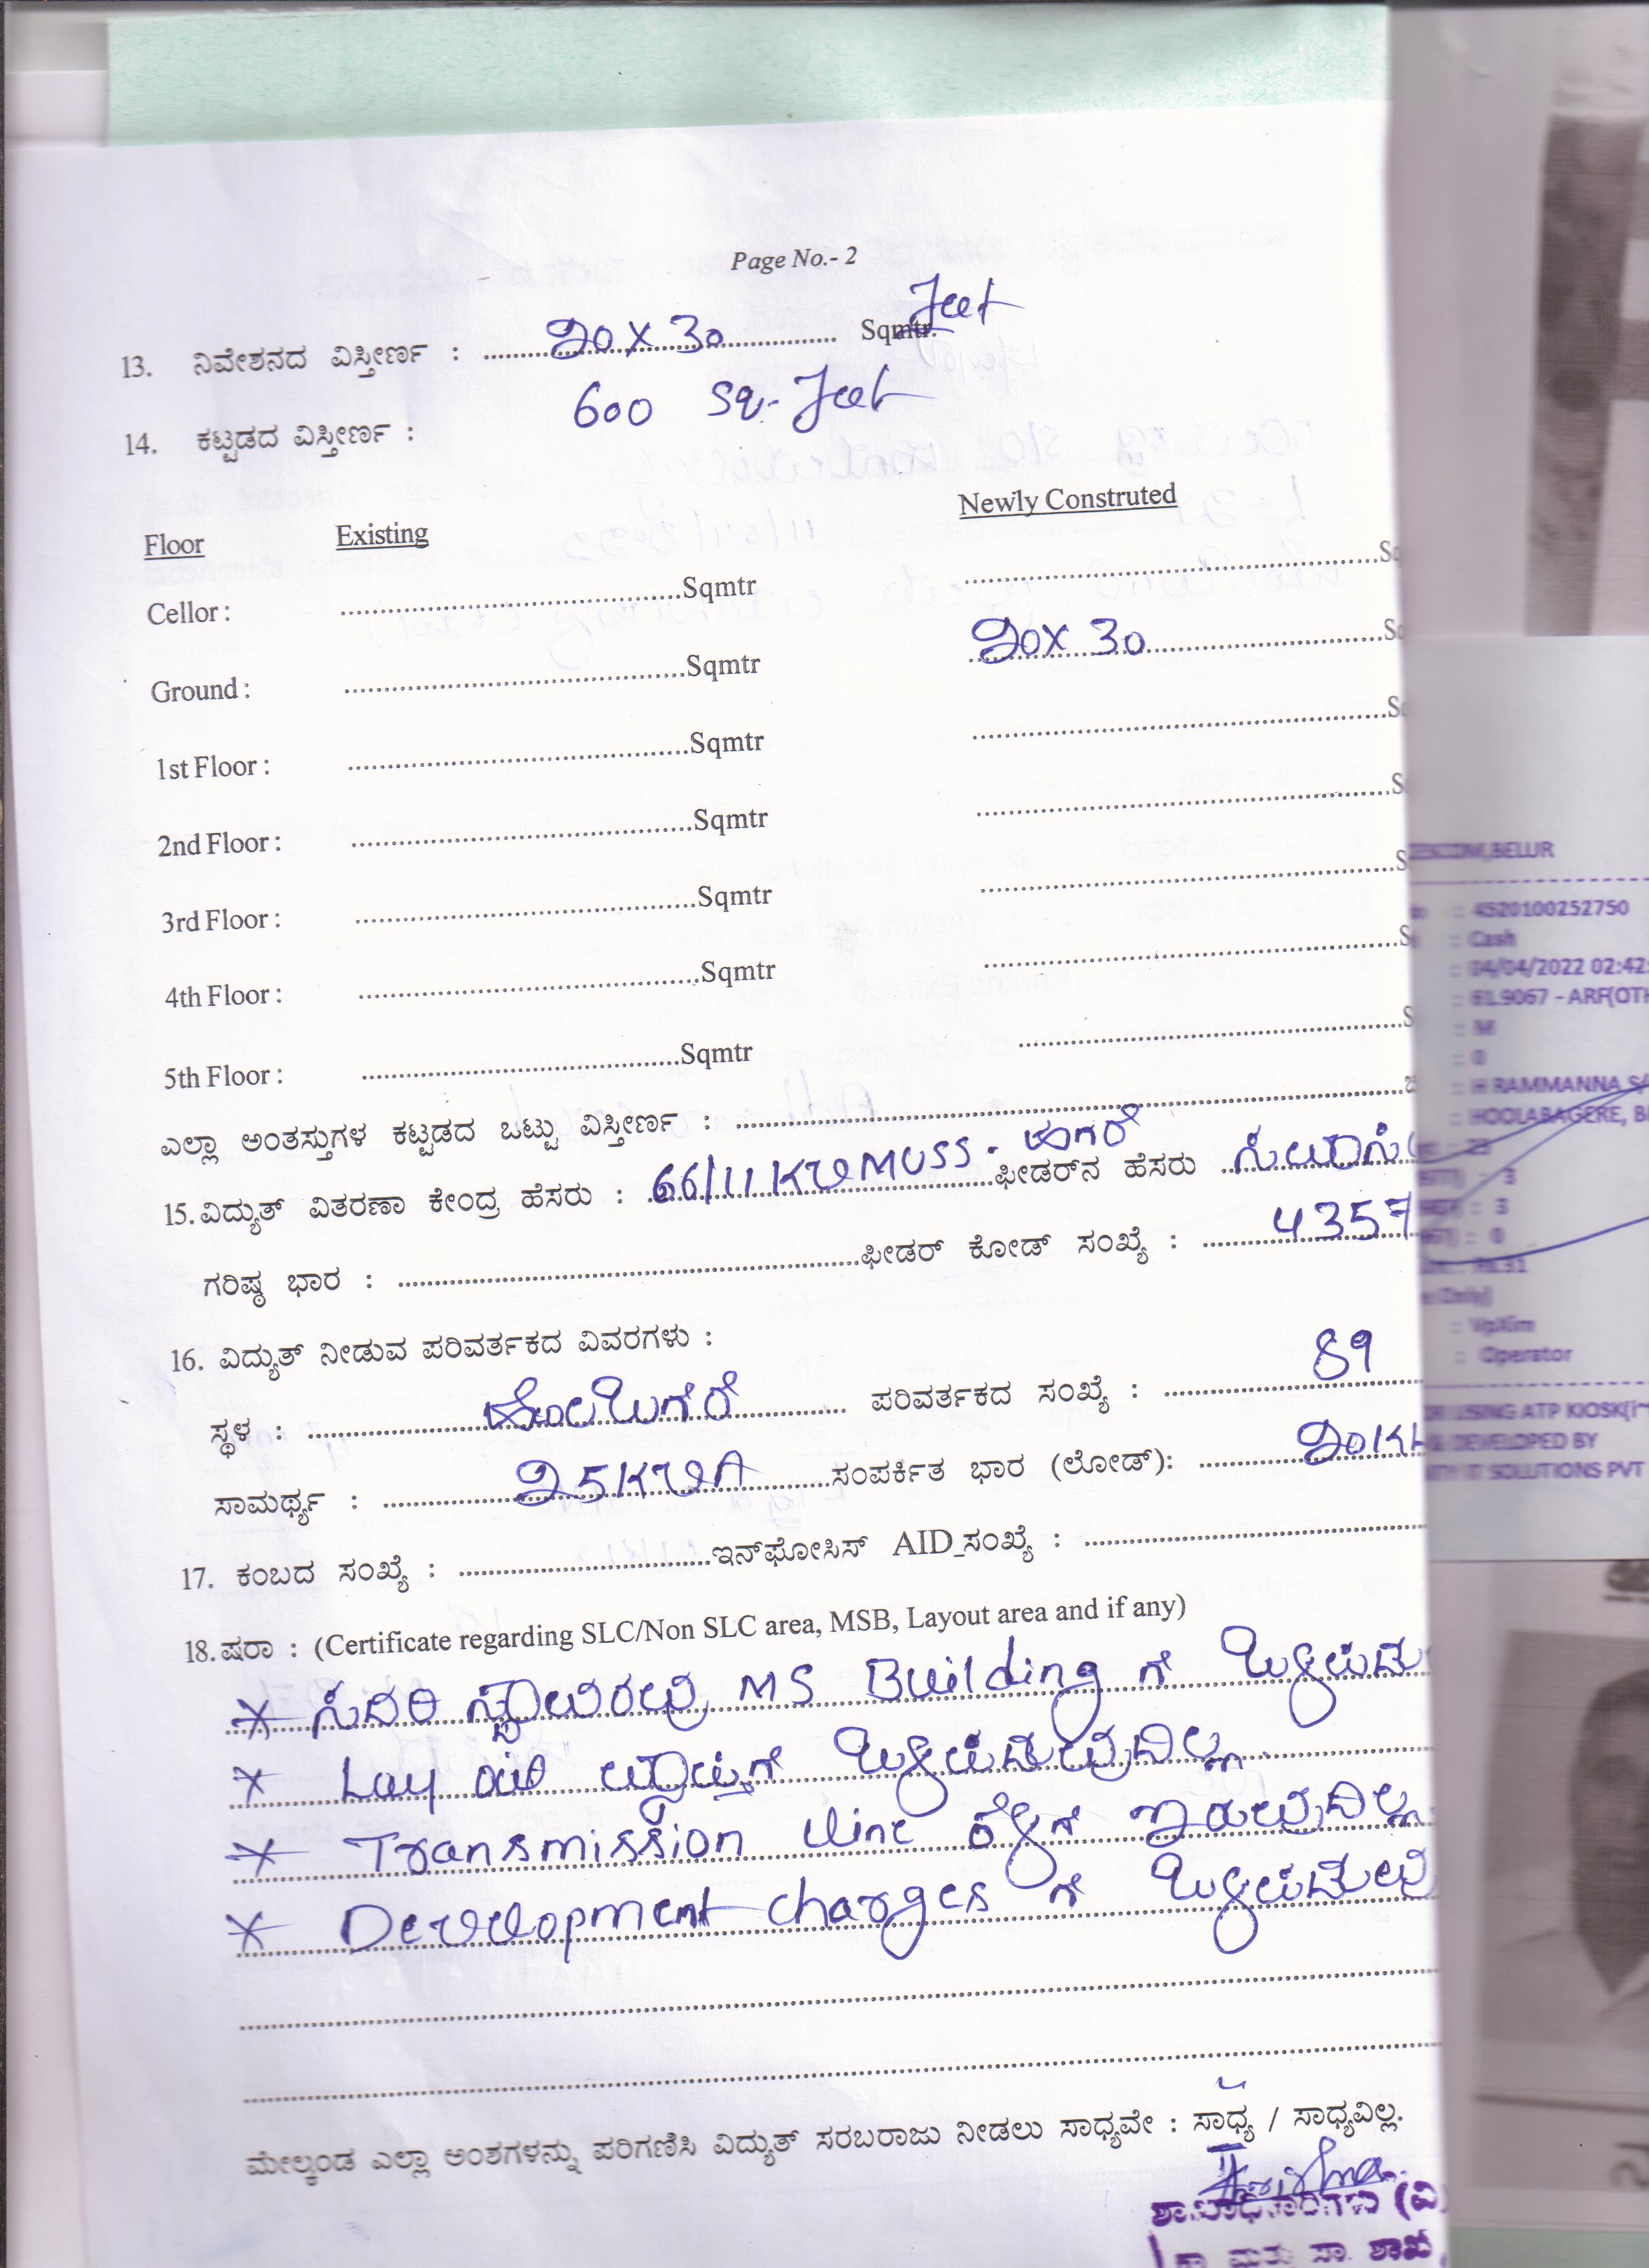 Page No.- 2
13. ನಿವೇಶನದ ವಿಸ್ತೀರ್ಣ : 20 X 30 Sqmtr. Feet
600 Sq. Feet
14. ಕಟ್ಟಡದ ವಿಸ್ತೀರ್ಣ :
Floor Existing Newly Construted
Cellor : Sqmtr
Ground : Sqmtr 20X 30
1st Floor : Sqmtr
2nd Floor : Sqmtr
3rd Floor : Sqmtr
4th Floor : Sqmtr
5th Floor : Sqmtr
ಎಲ್ಲಾ ಅಂತಸ್ತುಗಳ ಕಟ್ಟಡದ ಒಟ್ಟು ವಿಸ್ತೀರ್ಣ :
15. ವಿದ್ಯುತ್ ವಿತರಣಾ ಕೇಂದ್ರ ಹೆಸರು : 66/11 KV MUSS - ಹಗರೆ ಫೀಡರ್‌ನ ಹೆಸರು
ಗರಿಷ್ಠ ಭಾರ : ಫೀಡರ್ ಕೋಡ್ ಸಂಖ್ಯೆ : 4357
16. ವಿದ್ಯುತ್ ನೀಡುವ ಪರಿವರ್ತಕದ ವಿವರಗಳು :
ಸ್ಥಳ : ಪರಿವರ್ತಕದ ಸಂಖ್ಯೆ : 89
ಸಾಮರ್ಥ್ಯ : 25KVA ಸಂಪರ್ಕಿತ ಭಾರ (ಲೋಡ್): 20K
17. ಕಂಬದ ಸಂಖ್ಯೆ : ಇನ್‌ಫೋಸಿಸ್ AID_ಸಂಖ್ಯೆ :
18. ಷರಾ : (Certificate regarding SLC/Non SLC area, MSB, Layout area and if any)
* ಸದರಿ ಸ್ಥಾವರವು MS Building ಗೆ ಒಳಪಡು
* Lay out ವ್ಯಾಪ್ತಿಗೆ ಒಳಪಡುವುದಿಲ್ಲ.
* Transmission line ಕೆಳಗೆ ಇರುವುದಿಲ್ಲ
* Development charges ಗೆ ಒಳಪಡುವು
ಮೇಲ್ಕಂಡ ಎಲ್ಲಾ ಅಂಶಗಳನ್ನು ಪರಿಗಣಿಸಿ ವಿದ್ಯುತ್ ಸರಬರಾಜು ನೀಡಲು ಸಾಧ್ಯವೇ : ಸಾಧ್ಯ / ಸಾಧ್ಯವಿಲ್ಲ.
ಶಾಖಾಧಿಕಾರಿಗಳು (ವಿ
ಕಾ ಮತ್ತು ಸಾ. ಶಾಖೆ
BELUR
: 4520100252750
: Cash
: 04/04/2022 02:42
: 61.9067 - ARF(OTH
: M
: 0
: H RAMMANNA S/
: HOOLABAGERE, B
: 3
: 3
: 0
Rs.31
Only)
: Operator
USING ATP KIOSK
DEVELOPED BY
IT SOLUTIONS PVT